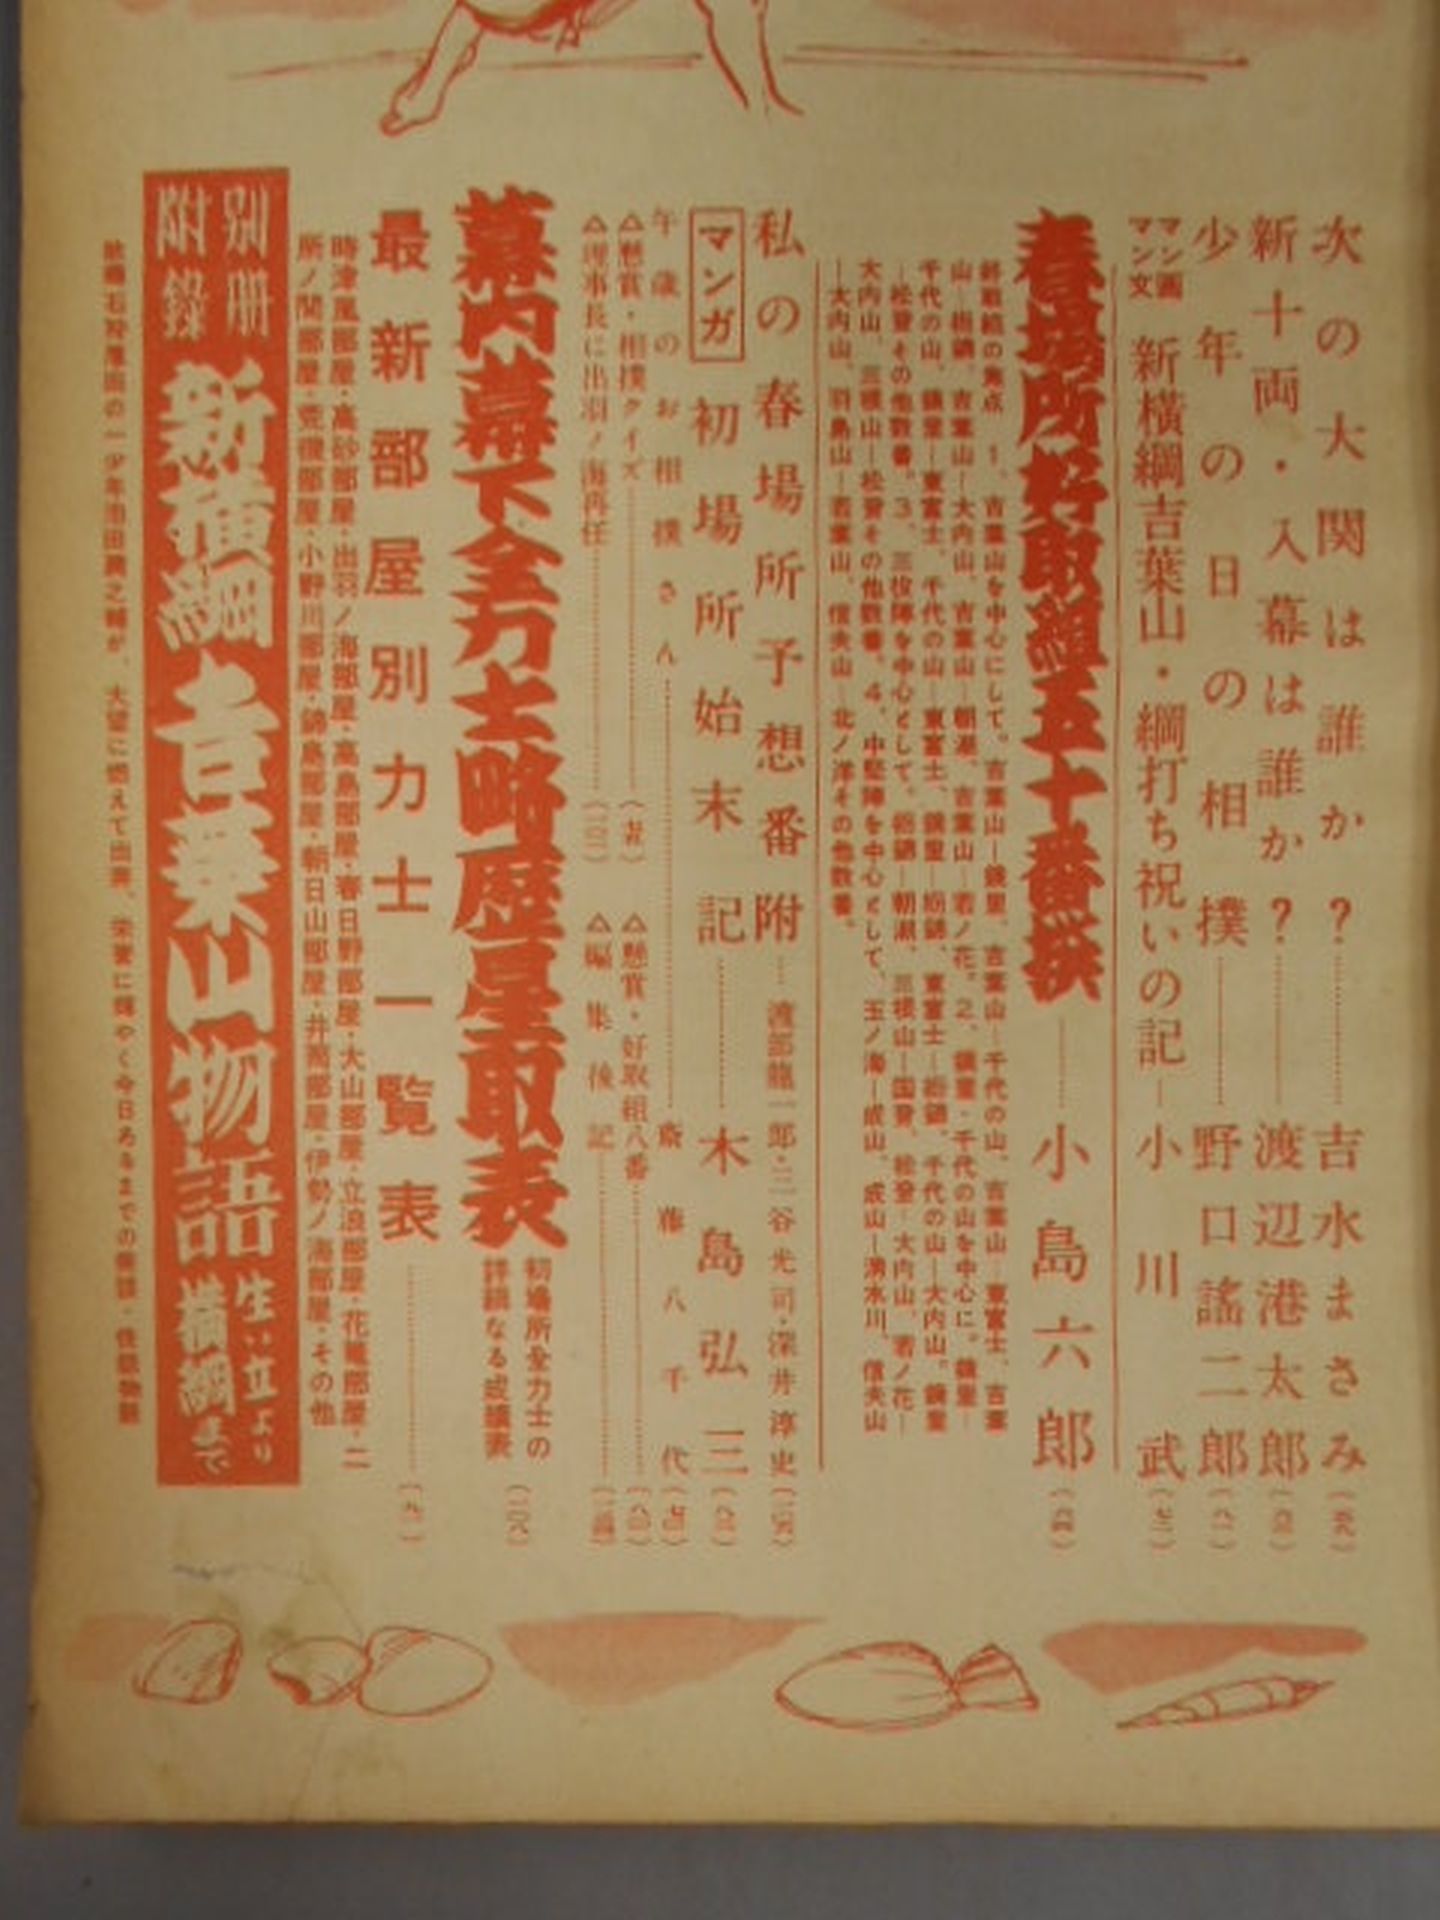 次の大関は誰か？……吉水まさみ
新十両・入幕は誰か？……渡辺港太郎
少年の日の相撲……野口謡二郎
マン画
マン文
新横綱吉葉山・綱打ち祝いの記―小川武
春場所好取組五十番撰―小島六郎
終戦続の焦点 1、吉葉山を中心にして。吉葉山―鏡里、吉葉山―千代の山、吉葉山―東富士、吉葉
山―栃錦、吉葉山―大内山、吉葉山―朝潮、吉葉山―若ノ花。2、鏡里・千代の山を中心に。鏡里―
千代の山、鏡里―東富士、千代の山―東富士、鏡里―栃錦、東富士―栃錦、千代の山―大内山、鏡里
―松登その他数番。3、三役陣を中心として。栃錦―朝潮、三根山―国登、松登―大内山、若ノ花―
大内山、三根山―松登その他数番。4、中堅陣を中心として、玉ノ海―成山、成山―清水川、信夫山
―大内山、羽島山―若葉山、信夫山―北ノ洋その他数番。
私の春場所予想番附…渡部龍一郎・三谷光司・深井淳史
マンガ
初場所始末記……木島弘三
午歳のお相撲さん……斎藤八千代
△懸賞・相撲クイズ…… △懸賞・好取組八番……
△理事長に出羽ノ海再任…… △編集後記……
幕内幕下全力士略歴星取表
初場所全力士の
詳細なる成績表
最新部屋別力士一覧表……
時津風部屋・高砂部屋・出羽ノ海部屋・高島部屋・春日野部屋・大山部屋・立浪部屋・花籠部屋・二
所ノ関部屋・荒磯部屋・小野川部屋・錦島部屋・朝日山部屋・井筒部屋・伊勢ノ海部屋・その他
別冊
附録
新横綱吉葉山物語
生い立より
横綱まで